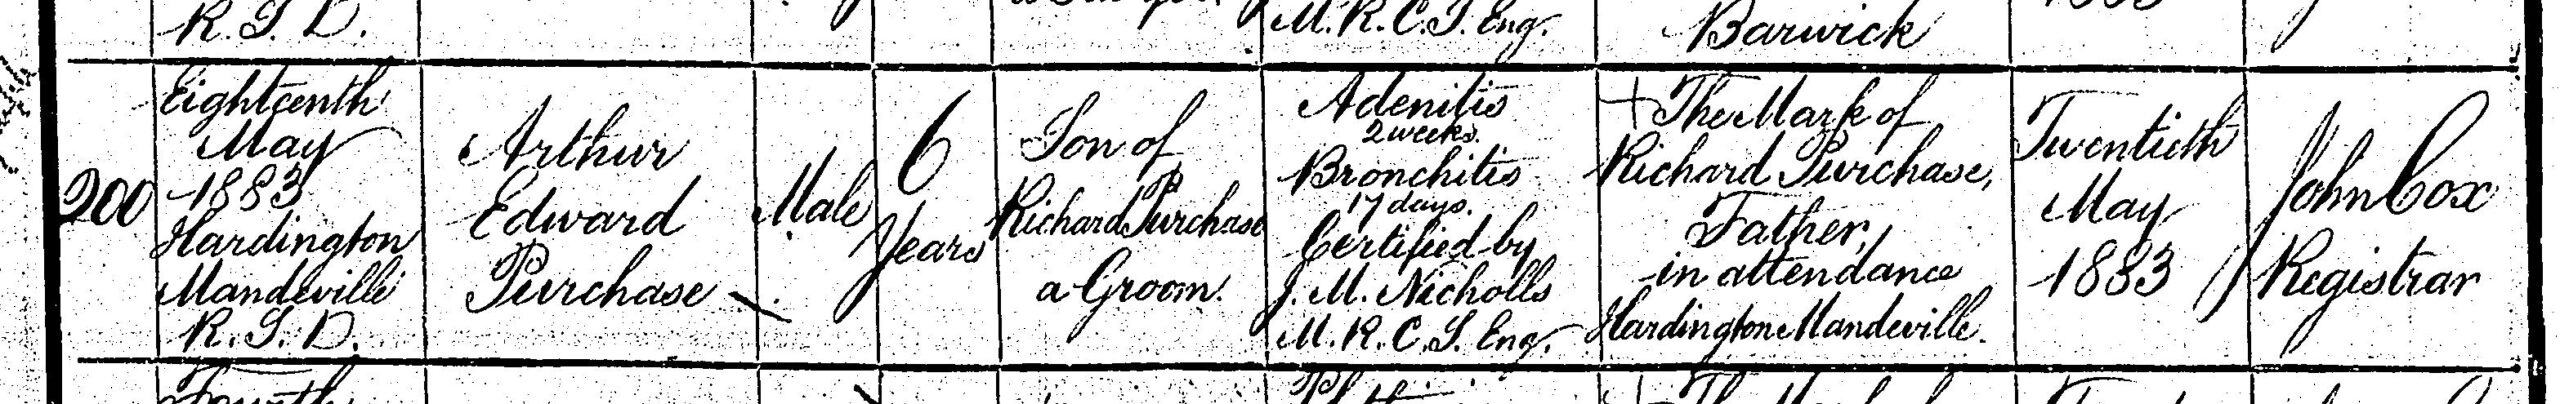 R. S. D.
M. R. C. S. Eng.
Barwick
200
Eighteenth
May
1883
Hardington
Mandeville
R. S. D.
Arthur
Edward
Purchase
Male
6
Years
Son of
Richard Purchase
a Groom.
Adenitis
2 weeks.
Bronchitis
17 days.
Certified by
J. M. Nicholls
M. R. C. S. Eng.
+ The Mark of
Richard Purchase,
Father,
in attendance
Hardington Mandeville.
Twentieth
May
1883
John Cox
Registrar